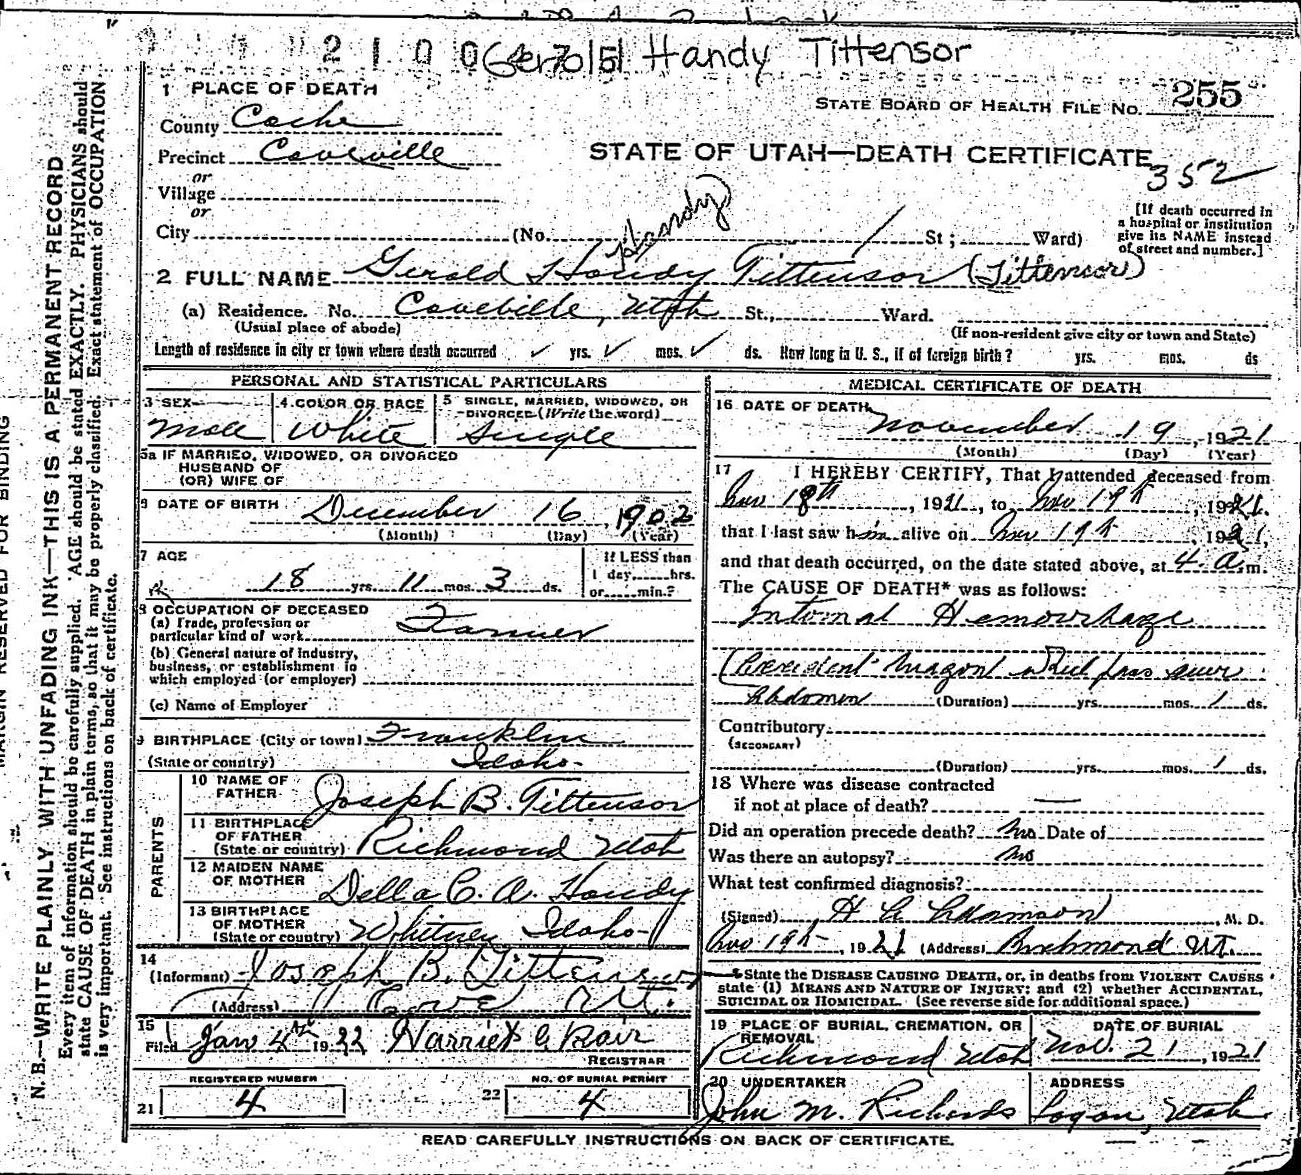 2100 Handy Tittensor
1 PLACE OF DEATH
STATE BOARD OF HEALTH FILE No. 255
County Cache
Precinct Coveville
STATE OF UTAH—DEATH CERTIFICATE
352
or
Village
or
City (No. St; Ward)
Handy
[If death occurred in
a hospital or institution
give its NAME instead
of street and number.]
2 FULL NAME Gerald Handy Tittensor (Tittensor)
(a) Residence. No. Coveville, Utah St., Ward.
(Usual place of abode)
(If non-resident give city or town and State)
Length of residence in city or town where death occurred ✓ yrs. ✓ mos. ✓ ds. How long in U. S., if of foreign birth? yrs. mos. ds
PERSONAL AND STATISTICAL PARTICULARS
3 SEX
Male
4 COLOR OR RACE
White
5 SINGLE, MARRIED, WIDOWED, OR
DIVORCED (Write the word)
Single
5a IF MARRIED, WIDOWED, OR DIVORCED
HUSBAND OF
(OR) WIFE OF
6 DATE OF BIRTH December 16, 1902
(Month) (Day) (Year)
7 AGE
18 yrs. 11 mos. 3 ds.
If LESS than
1 day, hrs.
or min.?
8 OCCUPATION OF DECEASED
(a) Trade, profession or
particular kind of work Farmer
(b) General nature of industry,
business, or establishment in
which employed (or employer)
(c) Name of Employer
9 BIRTHPLACE (City or town) Franklin
(State or country) Idaho
PARENTS
10 NAME OF
FATHER Joseph B. Tittensor
11 BIRTHPLACE
OF FATHER
(State or country) Richmond Utah
12 MAIDEN NAME
OF MOTHER Della C. A. Handy
13 BIRTHPLACE
OF MOTHER
(State or country) Whitney Idaho
14
(Informant) Joseph B. Tittensor
(Address) Cove Ut.
15
Filed Jan 4th 1922 Harriet G Bair
REGISTRAR
REGISTERED NUMBER
21 4
NO. OF BURIAL PERMIT
22 4
MEDICAL CERTIFICATE OF DEATH
16 DATE OF DEATH
November 19, 1921
(Month) (Day) (Year)
17 I HEREBY CERTIFY, That I attended deceased from
Nov 18th, 1921, to Nov 19th, 1921.
that I last saw him alive on Nov 19th, 1921,
and that death occurred, on the date stated above, at 4 A. m.
The CAUSE OF DEATH* was as follows:
Internal Hemorrhage
wheel pass over
Abdomen (Duration) yrs. mos. 1 ds.
Contributory
(SECONDARY)
(Duration) yrs. mos. 1 ds.
18 Where was disease contracted
if not at place of death? —
Did an operation precede death? No Date of
Was there an autopsy? No
What test confirmed diagnosis?
(Signed) Adamson, M. D.
Nov 19th, 1921 (Address) Richmond Ut.
*State the DISEASE CAUSING DEATH, or, in deaths from VIOLENT CAUSES
state (1) MEANS AND NATURE OF INJURY; and (2) whether ACCIDENTAL,
SUICIDAL OR HOMICIDAL. (See reverse side for additional space.)
19 PLACE OF BURIAL, CREMATION, OR
REMOVAL
Richmond Utah
DATE OF BURIAL
Nov. 21, 1921
20 UNDERTAKER
John M. Richards
ADDRESS
Logan, Utah
READ CAREFULLY INSTRUCTIONS ON BACK OF CERTIFICATE.
MARGIN RESERVED FOR BINDING
N. B.—WRITE PLAINLY WITH UNFADING INK—THIS IS A PERMANENT RECORD
Every item of information should be carefully supplied. AGE should be stated EXACTLY. PHYSICIANS should
state CAUSE OF DEATH in plain terms, so that it may be properly classified. Exact statement of OCCUPATION
is very important. See instructions on back of certificate.